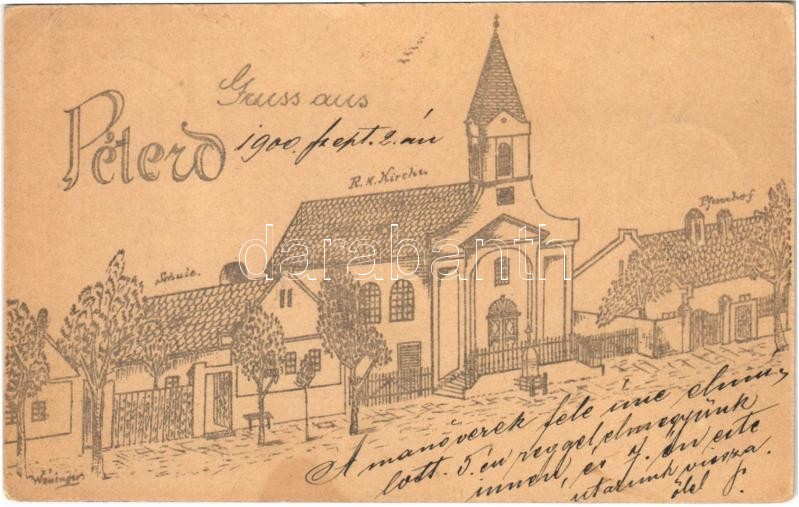 Gruss aus
Péterd
1900. szept. 2.án
R. K. Kirche.
Pfarrhof
Schule.
darabanth
A manőverek fele íme elmú-
lott. 5.én reggel elmegyünk
innen, és 7.én este
utazunk vissza.
ölel